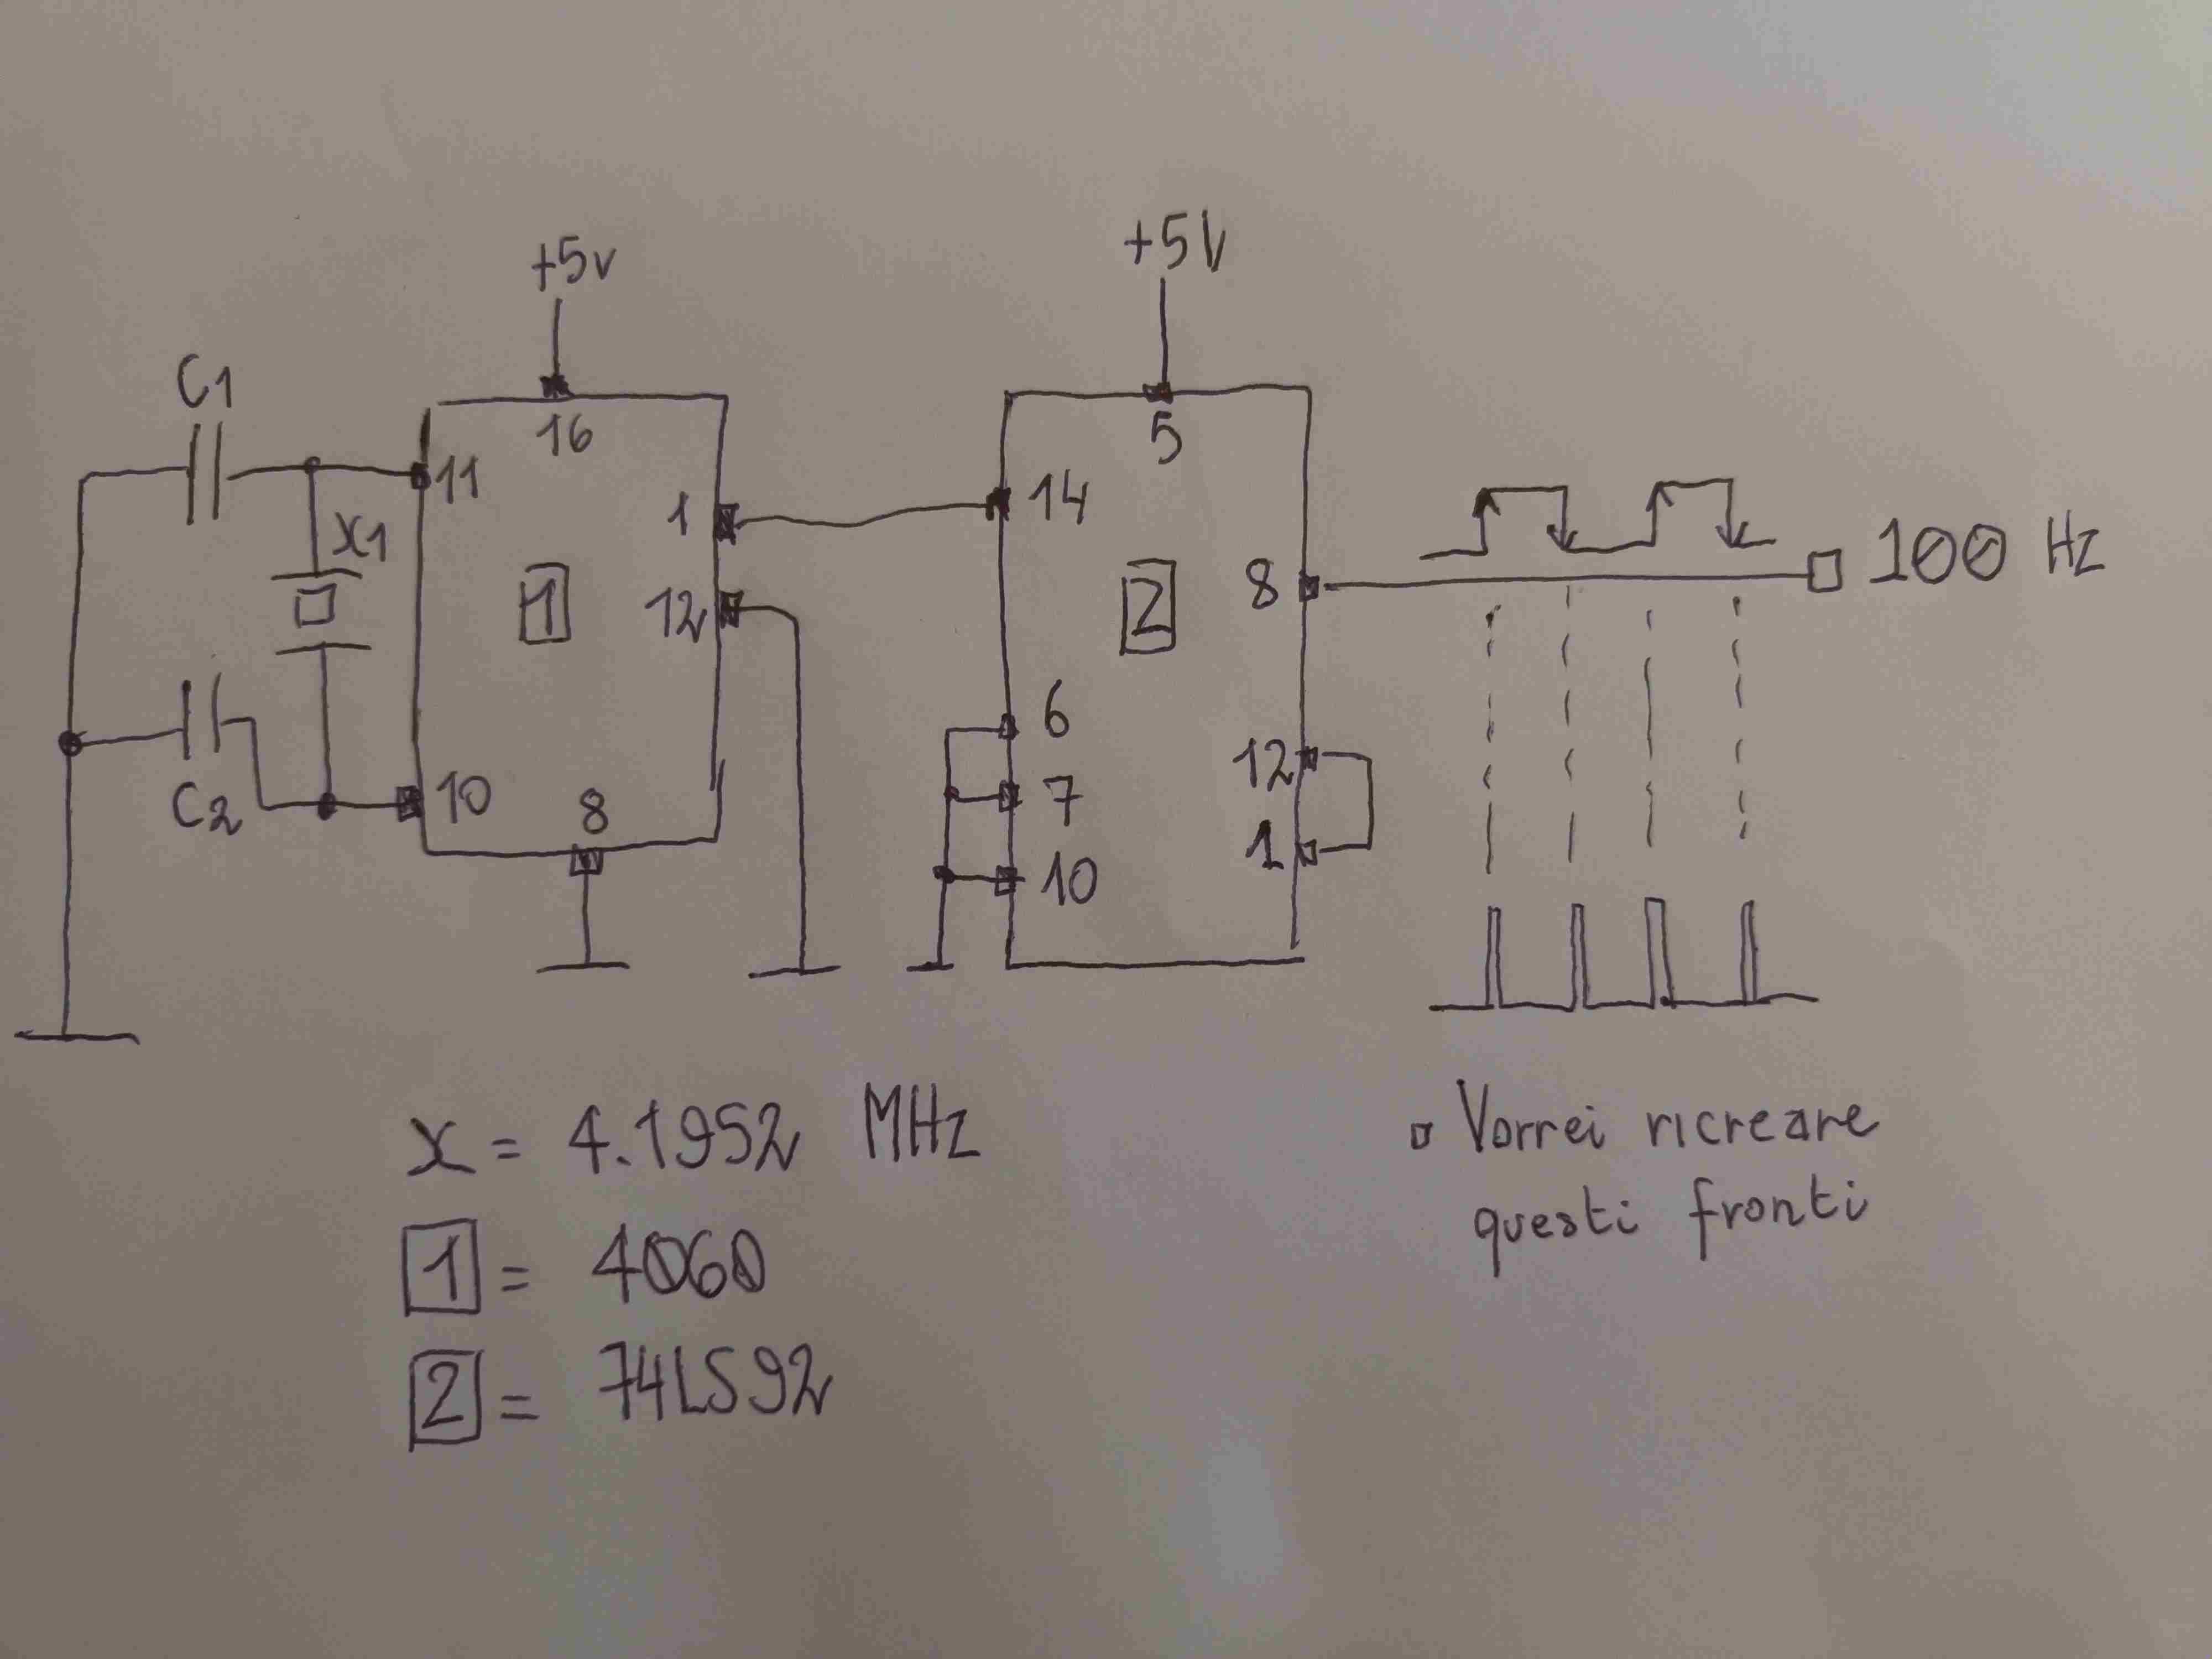 +5v
+5V
C1
16
5
11
1
14
X1
1
2
8
100 Hz
12
6
12
C2
10
8
7
1
10
x = 4.1952 MHz
1 = 4060
2 = 74LS92
Vorrei ricreare
questi fronti